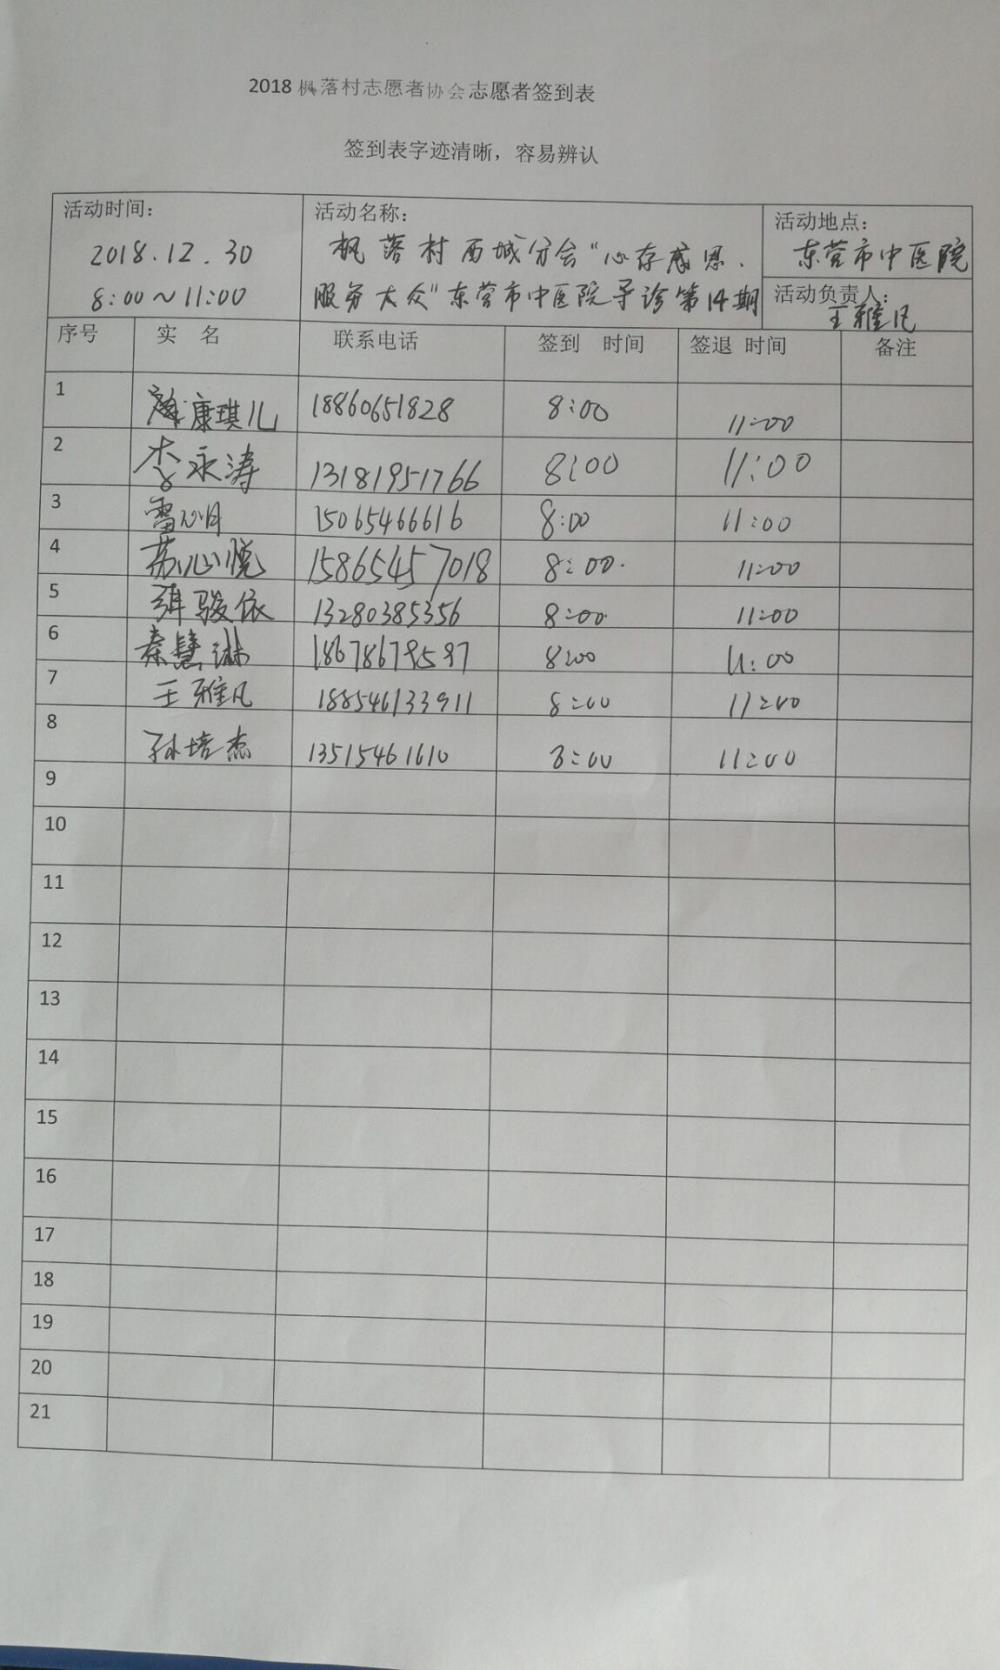 2018 枫落村志愿者协会志愿者签到表
签到表字迹清晰，容易辨认
活动时间：
2018.12.30
8:00～11:00
活动名称：
枫落村西城分会“心存感恩、
服务大众”东营市中医院导诊第14期
活动地点：
东营市中医院
活动负责人：
王雅凡
序号 实 名 联系电话 签到 时间 签退 时间 备注
1 康琪儿 18860651828 8:00 11:00
2 李永涛 13181951766 8:00 11:00
3 雷 15065466616 8:00 11:00
4 苏心悦 15865457018 8:00. 11:00
5 骏依 13280385356 8:00 11:00
6 秦慧琳 18678679597 8:00 11:00
7 王雅凡 18854613911 8:00 11:00
8 孙培杰 13515461610 8:00 11:00
9
10
11
12
13
14
15
16
17
18
19
20
21